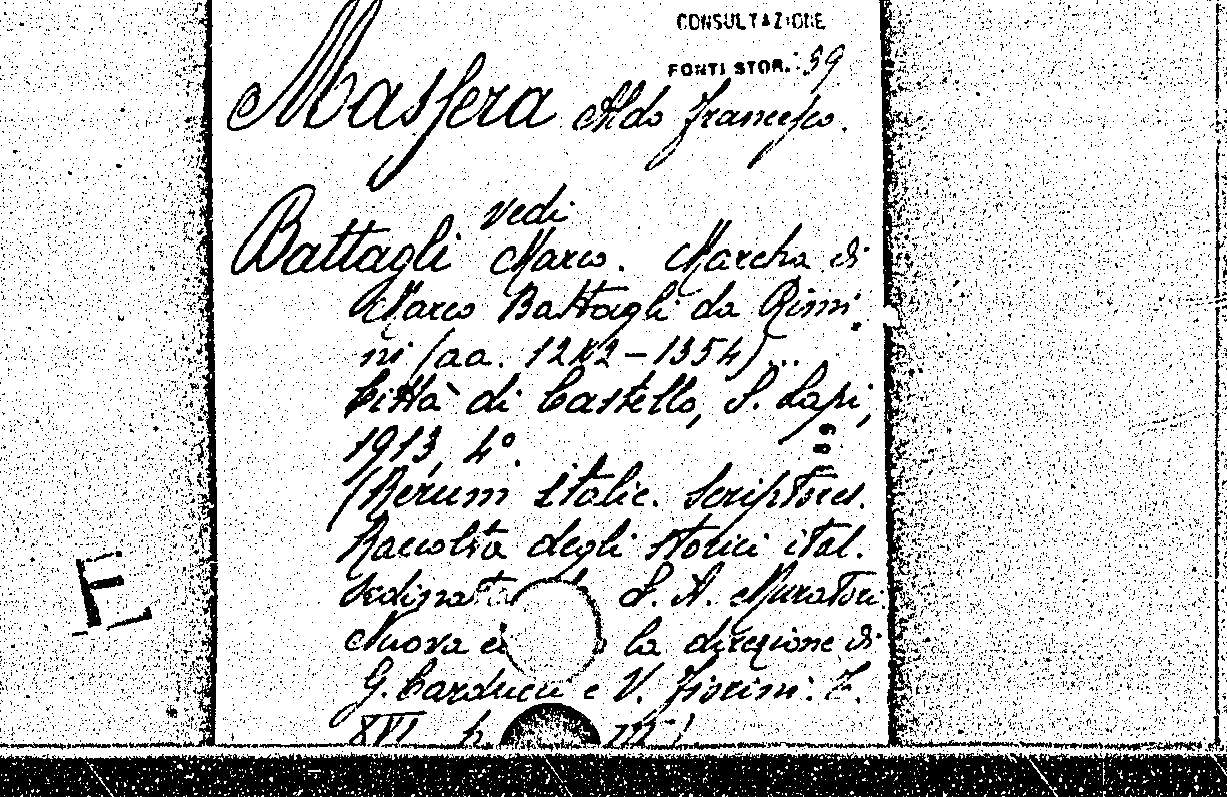 CONSULTAZIONE
FONTI STOR. 39
Massera Aldo Francesco.
vedi
Battagli Marco. Marcha di
Marco Battagli da Rimi
ni (aa. 1212-1354)...
Città di Castello, S. Lapi,
1913, 4°.
(Rerum italic. scriptores.
Raccolta degli storici ital.
L. A. Muratori
Nuova la direzione di
G. Carducci e V. Fiorini: T.
XVI p. III)
E